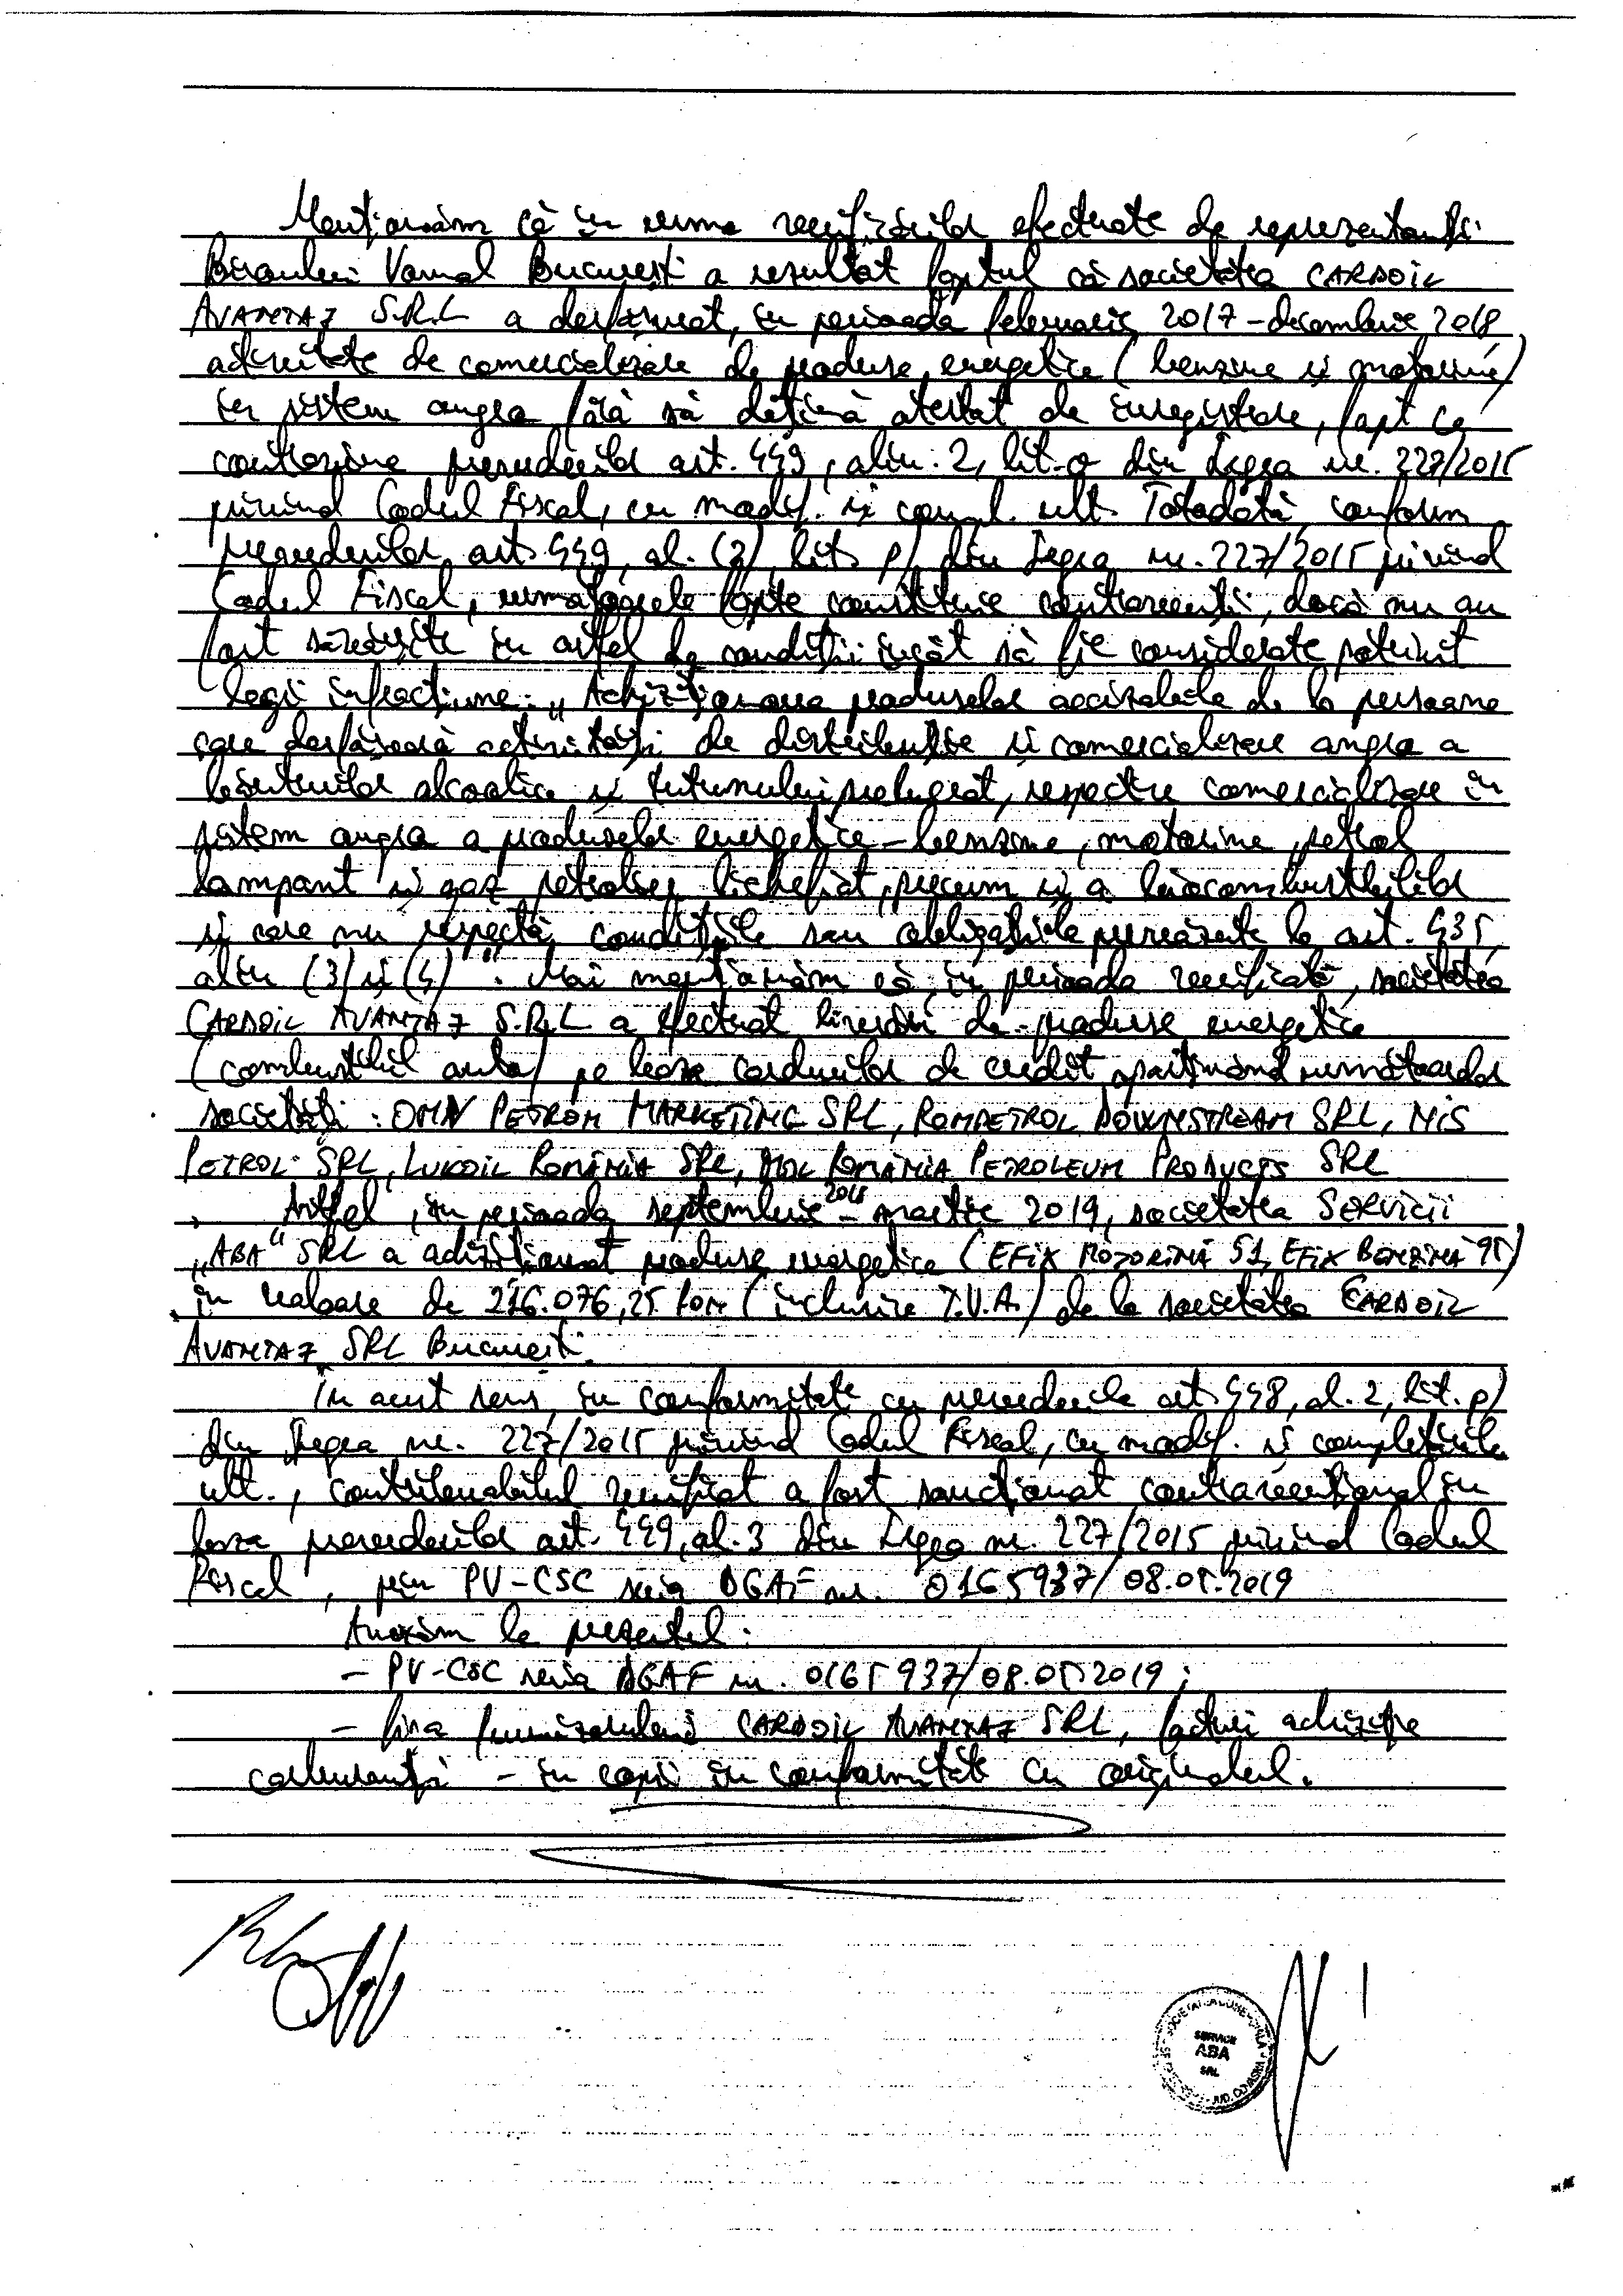 Menționăm că în urma verificărilor efectuate de reprezentanții
Biroului Vamal București a rezultat faptul că societatea CARDOIL
AVANTAJ S.R.L a desfășurat, în perioada februarie 2017 - decembrie 2018,
activitate de comercializare de produse energetice (benzine și motorine)
în sistem angro fără să dețină atestat de înregistrare, fapt ce
contravine prevederilor art. 449, alin. 2, lit. o din Legea nr. 227/2015
privind Codul Fiscal, cu modif. și compl. ult. Totodată, conform
prevederilor art. 449, al. (2), lit. p) din Legea nr. 227/2015 privind
Codul Fiscal, următoarele fapte constituie contravenții, dacă nu au
fost săvârșite în astfel de condiții încât să fie considerate potrivit
legii infracțiune: „Achiziționarea produselor accizabile de la persoane
care desfășoară activități de distribuție și comercializare angro a
băuturilor alcoolice și tutunului prelucrat, respectiv comercializare în
sistem angro a produselor energetice - benzine, motorine, petrol
lampant și gaz petrolier lichefiat, precum și a biocombustibililor
și care nu respectă condițiile sau obligațiile prevăzute la art. 435,
alin (3) și (4)". Mai menționăm că, în perioada verificată, societatea
CARDOIL AVANTAJ S.R.L a efectuat livrări de produse energetice
(combustibil auto) pe baza cardurilor de credit aparținând următoarelor
societăți: OMV PETROM MARKETING SRL, ROMPETROL DOWNSTREAM SRL, NIS
PETROL SRL, LUKOIL ROMÂNIA SRL, MOL ROMÂNIA PETROLEUM PRODUCTS SRL
Astfel, în perioada septembrie 2018 - martie 2019, societatea SERVICII
„ABA" SRL a achiziționat produse energetice (EFIX MOTORINĂ 51, EFIX BENZINĂ 95)
în valoare de 216.076,25 lei (inclusiv T.V.A.) de la societatea CARDOIL
AVANTAJ SRL București.
În acest sens, în conformitate cu prevederile art. 448, al. 2, lit. p)
din Legea nr. 227/2015 privind Codul Fiscal, cu modif. și completările
ult., contribuabilul verificat a fost sancționat contravențional în
baza prevederilor art. 449, al. 3 din Legea nr. 227/2015 privind Codul
Fiscal, prin PV-CSC seria DGAF nr. 0165937/08.05.2019
Anexăm la prezentul:
- PV-CSC seria DGAF nr. 0165937/08.05.2019;
- fișa furnizorului CARDOIL AVANTAJ SRL, facturi achiziție
carburanți - în copii în conformitate cu originalul.
SERVICII
ABA
SRL